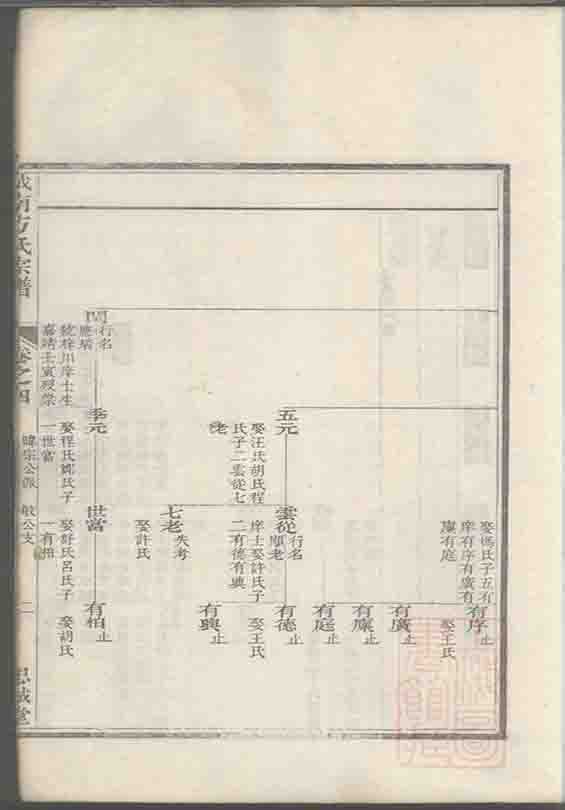 娶馮氏子五有
庠有序有廣有
廉有庭
有序止
娶王氏
有廣止
有廉止
有庭止
五元
娶汪氏胡氏程
氏子二雲從七
老
雲從
行名
順老
庠士娶許氏子
二有德有興
有德止
娶王氏
有興止
七老
失考
娶許氏
行名
應瑞
號梓川庠士生
嘉靖壬寅歿崇
季元
娶程氏鄭氏子
一世當
世當
娶舒氏呂氏子
一有柏
有柏止
娶胡氏
城南方氏宗譜
卷之四
公派
般公支
二
思誠堂